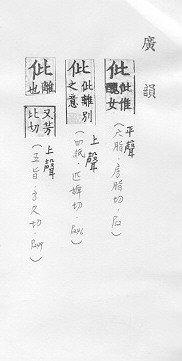 廣韻
仳仳倠醜女
平聲
(六脂.房脂切.
仳仳離別之意
上聲
(四紙.匹婢切.
仳離也又芳比切
上聲
(五旨.